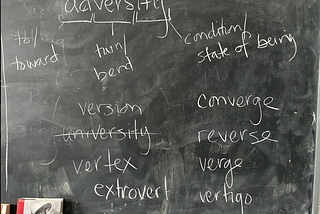 adversity
to/
toward
turn/
bend
condition/
state of being
version
converge
university
reverse
vertex
verge
extrovert
vertigo